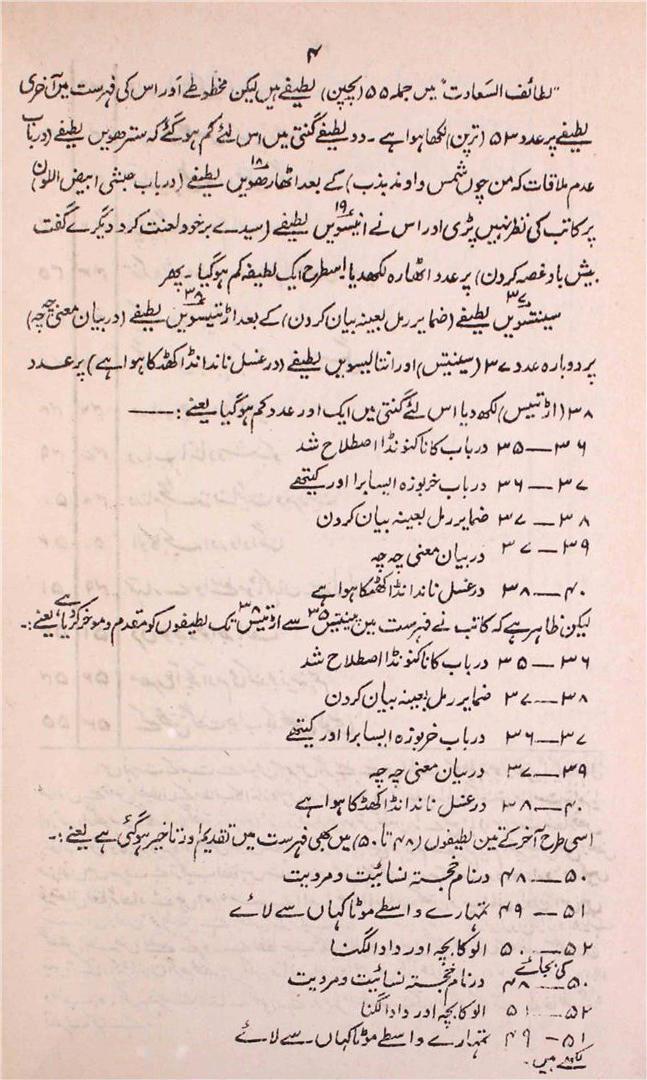 ۴
"لطائف السعادت" میں جملہ ۵۵ (پچپن) لطیفے ہیں لیکن مخطوطے اور اس کی فہرست میں آخری
لطیفے پر عدد ۵۳ (ترپن) لکھا ہوا ہے ۔ دو لطیفے گنتی میں اس لئے کم ہو گئے کہ سترھویں لطیفے (درباب
عدم ملاقات کہ من چوں شمس و او ند بذب) کے بعد اٹھارھویں ۱۸ لطیفے (درباب حبشی ابیض اللون)
پر کاتب کی نظر نہیں پڑی اور اس نے انیسویں ۱۹ لطیفے (سیدے برخود لعنت کرد دیگرے گفت
بیش باد غصہ کردن) پر عدد اٹھارہ لکھدیا اسطرح ایک لطیفہ کم ہو گیا ۔ پھر
سینتیسویں ۳۷ لطیفے (ضمایر رمل بعینہ بیان کردن) کے بعد اڑتیسویں ۳۸ لطیفے (دربیان معنی چہ چہ)
پر دوبارہ عدد ۳۷ (سینتیس) اور انتالیسویں لطیفے (درغسل ناندانڈا کھڈکا ہوا ہے) پر عدد
۳۸ (اڑتیس) لکھ دیا اس لئے گنتی میں ایک اور عدد کم ہو گیا یعنے :ــــ
۳۶ — ۳۵ درباب کاناکنونڈا اصطلاح شد
۳۷ — ۳۶ درباب خربوزہ ایسا برا اور کیتھے
۳۸ — ۳۷ ضمایر رمل بعینہ بیان کردن
۳۹ — ۳۷ دربیان معنی چہ چہ
۴۰ — ۳۸ درغسل ناندانڈا کھڈکا ہوا ہے
لیکن ظاہر ہے کہ کاتب نے فہرست میں پینتیس ۳۵ سے اڑتیس ۳۸ تک لطیفوں کو مقدم و موخر کر دیا ہے یعنے :۔
۳۶ — ۳۵ درباب کاناکنونڈا اصطلاح شد
۳۸ — ۳۷ ضمایر رمل بعینہ بیان کردن
۳۷ — ۳۶ درباب خربوزہ ایسا برا اور کیتھے
۳۹ — ۳۷ دربیان معنی چہ چہ
۴۰ — ۳۸ درغسل ناندانڈا کھڈکا ہوا ہے
اسی طرح آخر کے تین لطیفوں (۴۸ تا ۵۰) میں بھی فہرست میں تقدیم اور تاخیر ہو گئی ہے یعنے :۔
۵۰ — ۴۸ درنام خجستہ نسائیت و مردیت
۵۱ — ۴۹ تمہارے واسطے موٹا کہاں سے لائے
۵۲ — ۵۰ الو کا بچہ اور دادا لگنا
کی بجائے
۵۰ — ۴۸ درنام خجستہ نسائیت و مردیت
۵۲ — ۵۱ الو کا بچہ اور دادا لگنا
۵۱ — ۴۹ تمہارے واسطے موٹا کہاں سے لائے
لکھے ہیں ۔